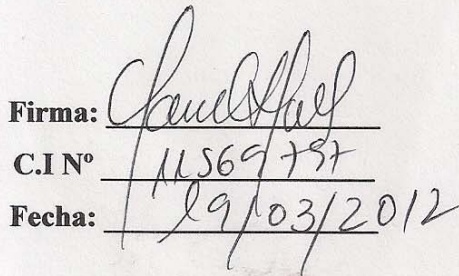 Firma:
C.I Nº 11569797
Fecha: 19/03/2012